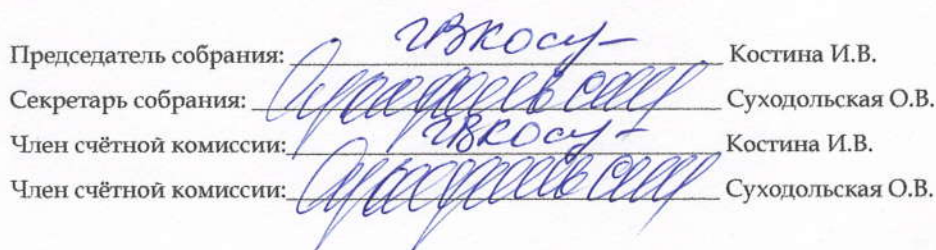 Председатель собрания: Костина И.В.
Секретарь собрания: Суходольская О.В.
Член счётной комиссии: Костина И.В.
Член счётной комиссии: Суходольская О.В.